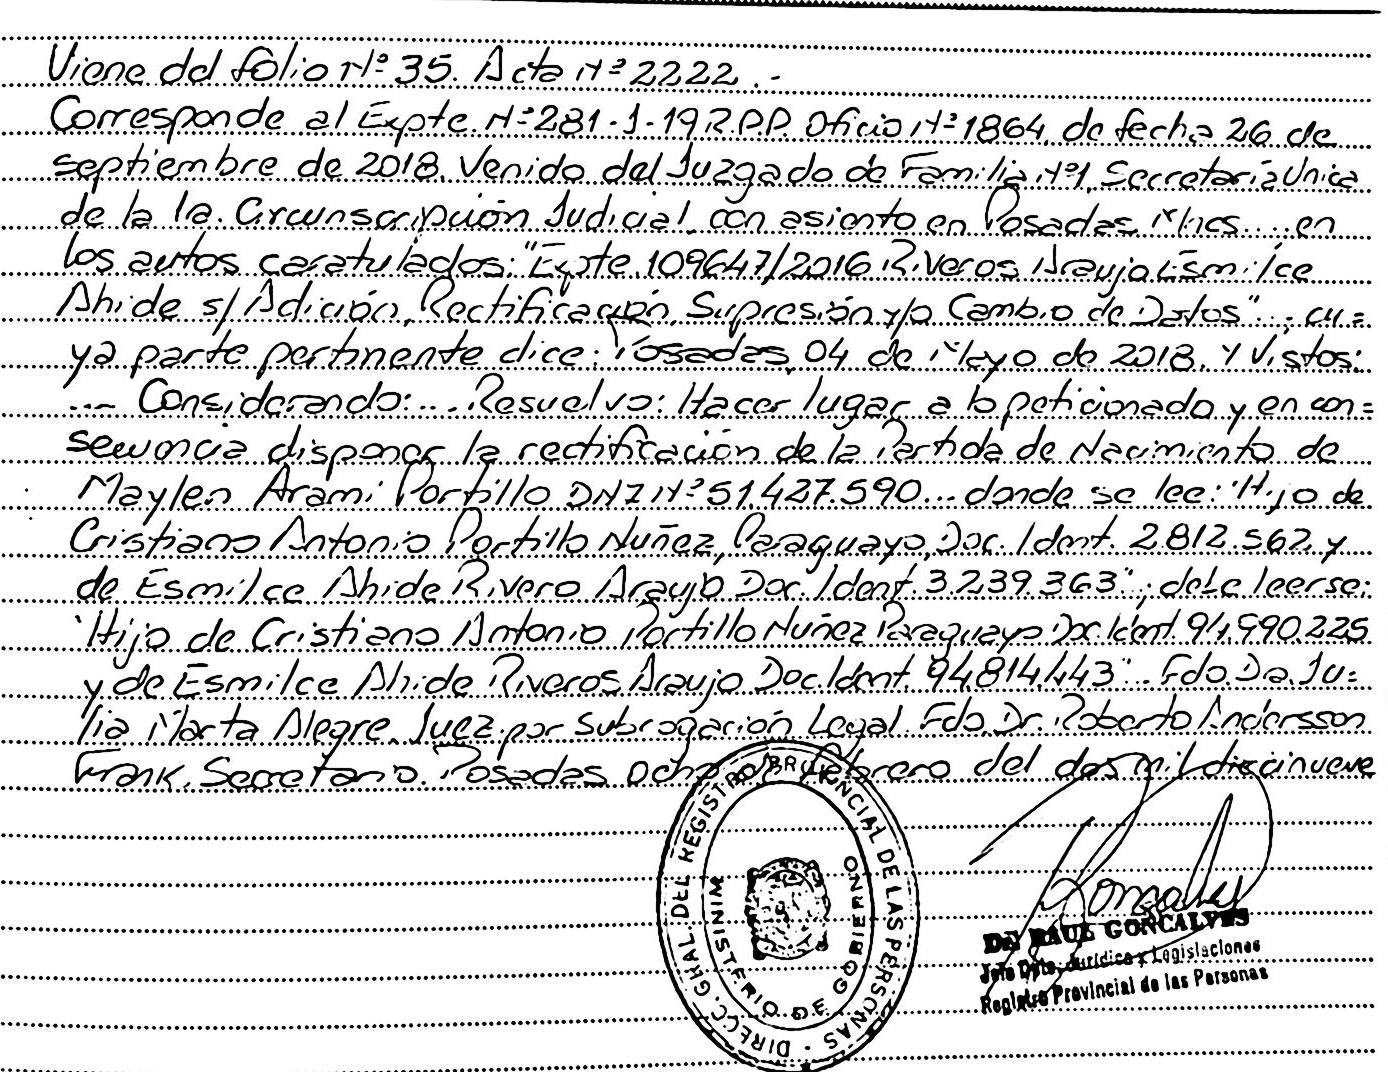 Viene del folio Nº 35. Acta Nº 2222.-
Corresponde al Expte. Nº 281-J-19 R.P.P. Oficio Nº 1864, de fecha 26 de
septiembre de 2018. Venido del Juzgado de Familia Nº1, Secretaría Única
de la 1a. Circunscripción Judicial, con asiento en Posadas, Mnes.... en
los autos caratulados: "Expte. 109647/2016 Riveros Araujo Esmilce
Ahide s/ Adición, Rectificación, Supresión y/o Cambio de Datos"..., cu=
ya parte pertinente dice: Posadas, 04 de Mayo de 2018. Y Vistos:
... Considerando: ... Resuelvo: Hacer lugar a lo peticionado y en con=
secuencia disponer la rectificación de la Partida de Nacimiento de
Maylen Arami Portillo DNI Nº 51.427.590... donde se lee: "Hijo de
Cristiano Antonio Portillo Nuñez, Paraguayo, Doc. Ident. 2.812.562 y
de Esmilce Ahide Rivero Araujo Doc. Ident. 3.239.363"; debe leerse:
"Hijo de Cristiano Antonio Portillo Nuñez Paraguayo Doc. Ident. 94.990.225
y de Esmilce Ahide Riveros Araujo Doc. Ident. 94.814.443". Fdo. Dra. Ju=
lia Marta Alegre. Juez por Subrogación Legal. Fdo. Dr. Roberto Andersson
Frank. Secretario. Posadas ocho de febrero del dos mil diecinueve
DIRECC. GRAL. DEL REGISTRO PROVINCIAL DE LAS PERSONAS
MINISTERIO DE GOBIERNO
Goncalves
Dr. RAUL GONCALVES
Jefe Dpto. Jurídica y Legislaciones
Registro Provincial de las Personas